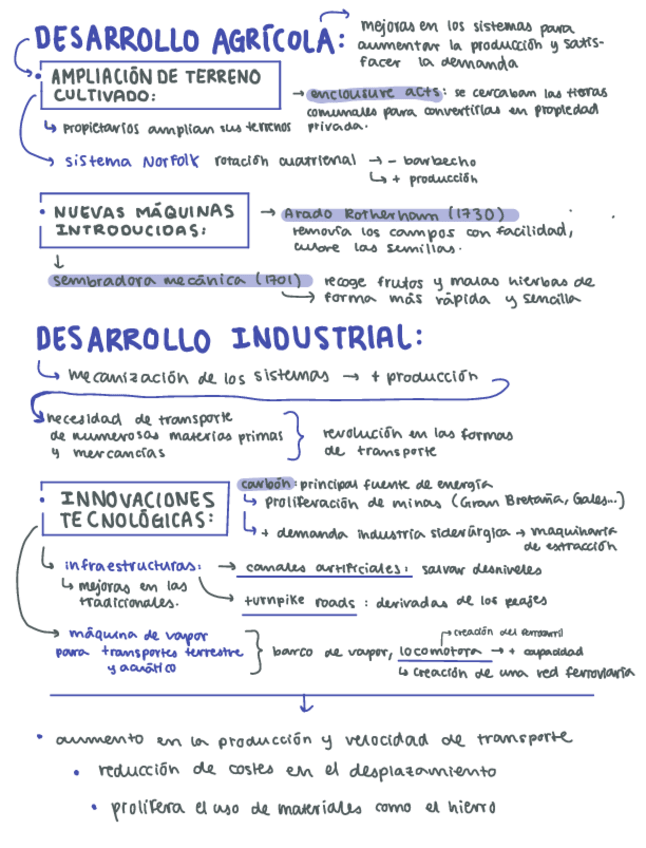 DESARROLLO AGRÍCOLA: mejoras en los sistemas para
aumentar la producción y satis-
facer la demanda
• AMPLIACIÓN DE TERRENO
CULTIVADO:
→ enclousure acts: se cercaban las tierras
comunales para convertirlas en propiedad
privada.
↳ propietarios amplian sus terrenos
↳ sistema Norfolk rotación cuatrienal → - barbecho
↳ + producción
• NUEVAS MÁQUINAS
INTRODUCIDAS:
→ Arado Rotherham (1730)
removía los campos con facilidad,
cubre las semillas.
↓
sembradora mecánica (1701) recoge frutos y malas hierbas de
forma más rápida y sencilla
DESARROLLO INDUSTRIAL:
↳ mecanización de los sistemas → + producción
necesidad de transporte
de numerosas materias primas
y mercancías
revolución en las formas
de transporte
• INNOVACIONES
TECNOLÓGICAS:
carbón: principal fuente de energía
↳ proliferación de minas (Gran Bretaña, Gales...)
↳ + demanda industria siderúrgica → maquinaria
de extracción
↳ infraestructuras: → canales artificiales: salvar desniveles
↳ mejoras en las
tradicionales.
→ turnpike roads: derivadas de los peajes
→ máquina de vapor
para transportes terrestre
y acuático
→ creación del ferrocarril
barco de vapor, locomotora → + capacidad
↳ creación de una red ferroviaria
↓
• aumento en la producción y velocidad de transporte
• reducción de costes en el desplazamiento
• prolifera el uso de materiales como el hierro